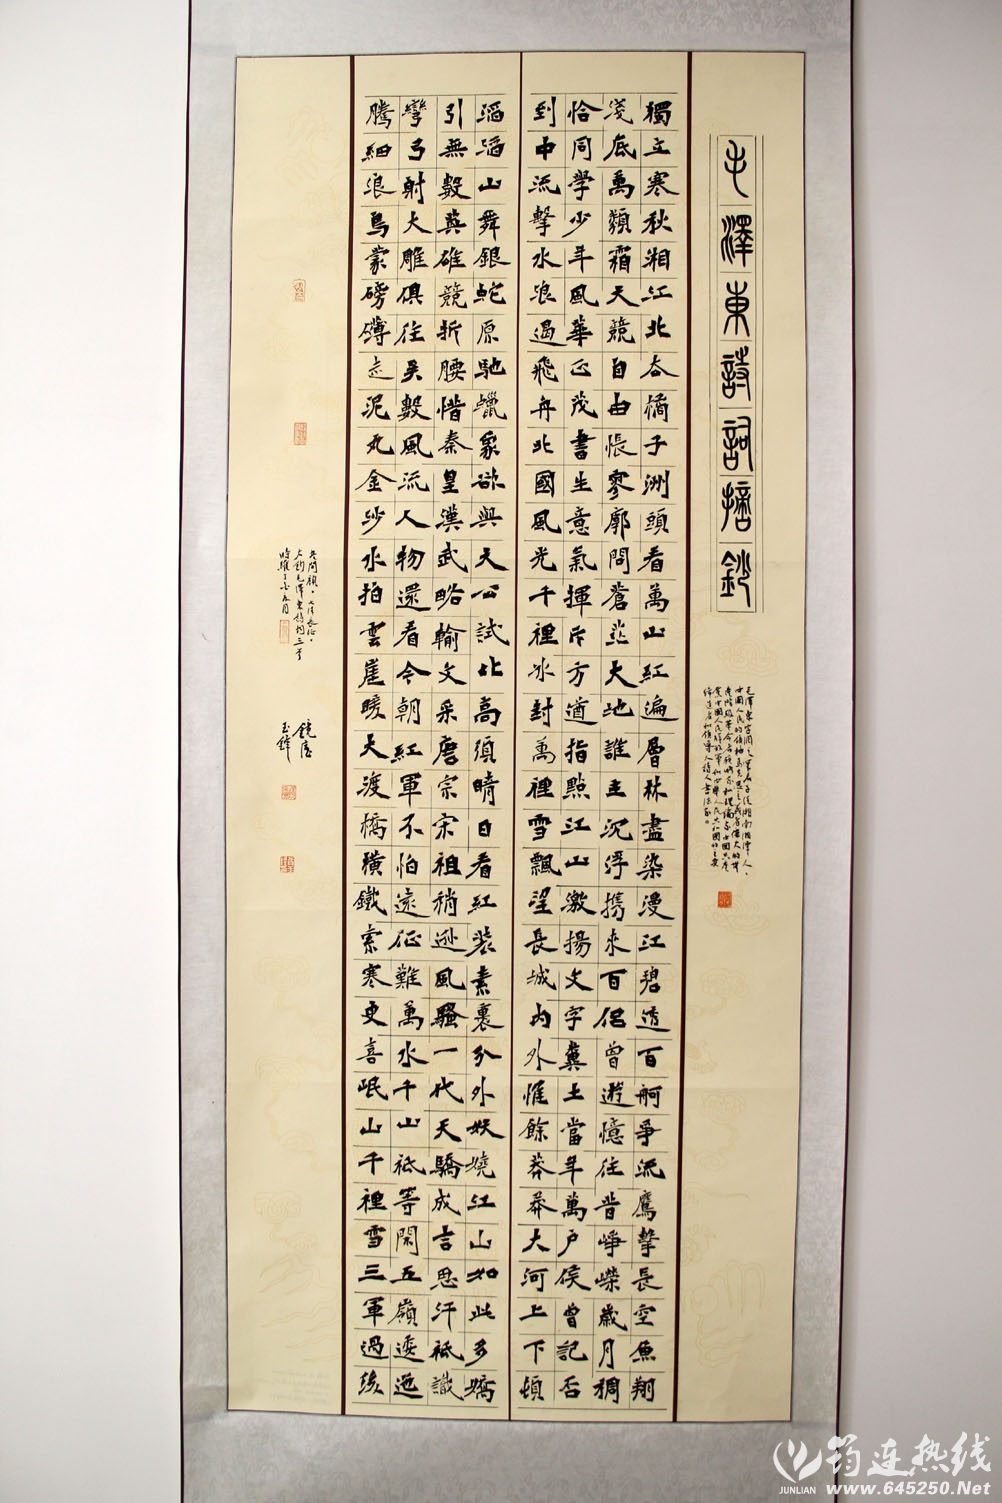 毛澤東詩詞摘鈔
毛澤東字潤之筆名子任湖南湘潭人、
中國人民的領袖馬克思主義者偉大的無
產階級革命家戰略家和理論家中國共產
黨中國人民解放軍和中華人民共和國的主要
締造者和領導人詩人書法家。
獨立寒秋湘江北去橘子洲頭看萬山紅遍層林盡染漫江碧透百舸爭流鷹擊長空魚翔
淺底萬類霜天競自由悵寥廓問蒼茫大地誰主沉浮攜來百侶曾遊憶往昔崢嶸歲月稠
恰同學少年風華正茂書生意氣揮斥方遒指點江山激揚文字糞土當年萬戶侯曾記否
到中流擊水浪遏飛舟北國風光千裡冰封萬裡雪飄望長城內外惟餘莽莽大河上下頓
滔滔山舞銀蛇原馳蠟象欲與天公試比高須晴日看紅裝素裹分外妖嬈江山如此多嬌
引無數英雄競折腰惜秦皇漢武略輸文采唐宗宋祖稍遜風騷一代天驕成吉思汗祗識
彎弓射大雕俱往矣數風流人物還看今朝紅軍不怕遠征難萬水千山祗等閑五嶺逶迤
騰細浪烏蒙磅礴走泥丸金沙水拍雲崖暖大渡橋橫鐵索寒更喜岷山千裡雪三軍過後
盡開顏。七律長征。
右鈔毛澤東詩詞三首
時維丁亥九月
玉鋒
筠连热线
JUNLIAN
www.645250.Net